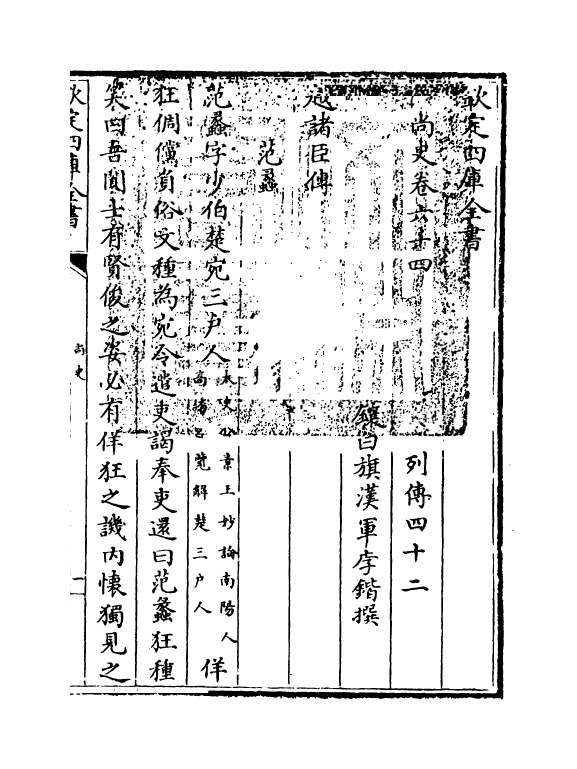 欽定四庫全書
尚史卷六十四 列傳四十二
鑲白旗漢軍李鍇撰
越諸臣傳
范蠡
范蠡字少伯楚宛三户人太史公素王妙論南陽人高誘吕覽解楚三户人佯
狂倜儻負俗文種為宛令遣吏謁奉吏還曰范蠡狂種
笑曰吾聞士有賢俊之姿必有佯狂之譏内懷獨見之
欽定四庫全書
尚史